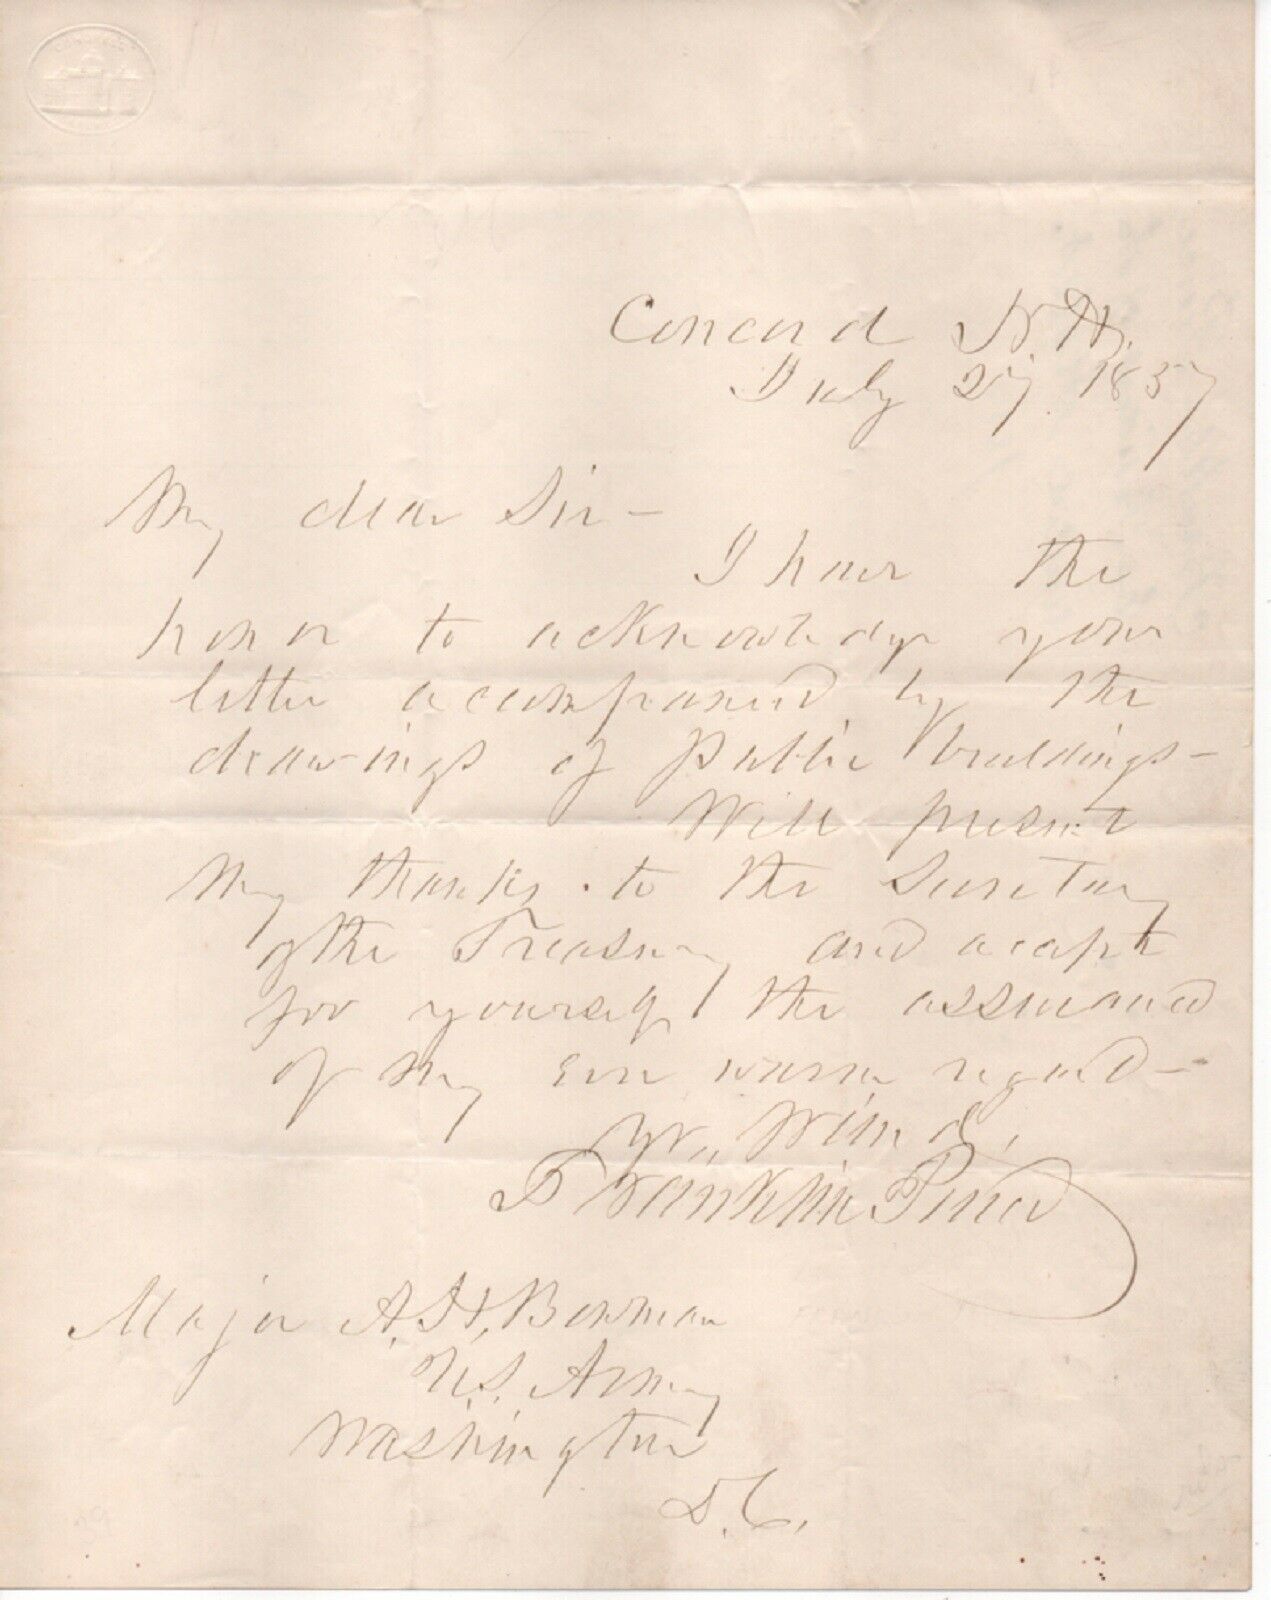 CONGRESS
Concord N.H.
July 27. 1857
My dear Sir -
I have the
honor to acknowledge your
letter accompanied by the
drawings of public buildings -
Will present
my thanks to the Secretary
of the Treasury and accept
for yourself the assurance
of my warm regard -
Yr.
Franklin Pierce
Major A.H. Bowman
U.S. Army
Washington
D.C.